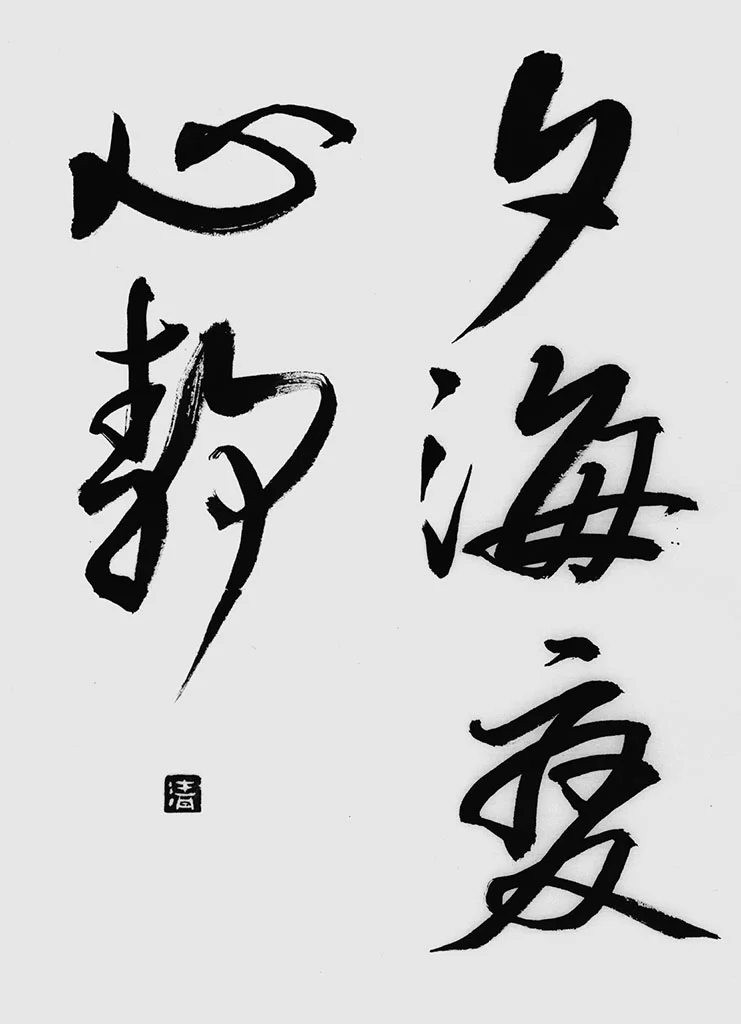 夕海
心静
清